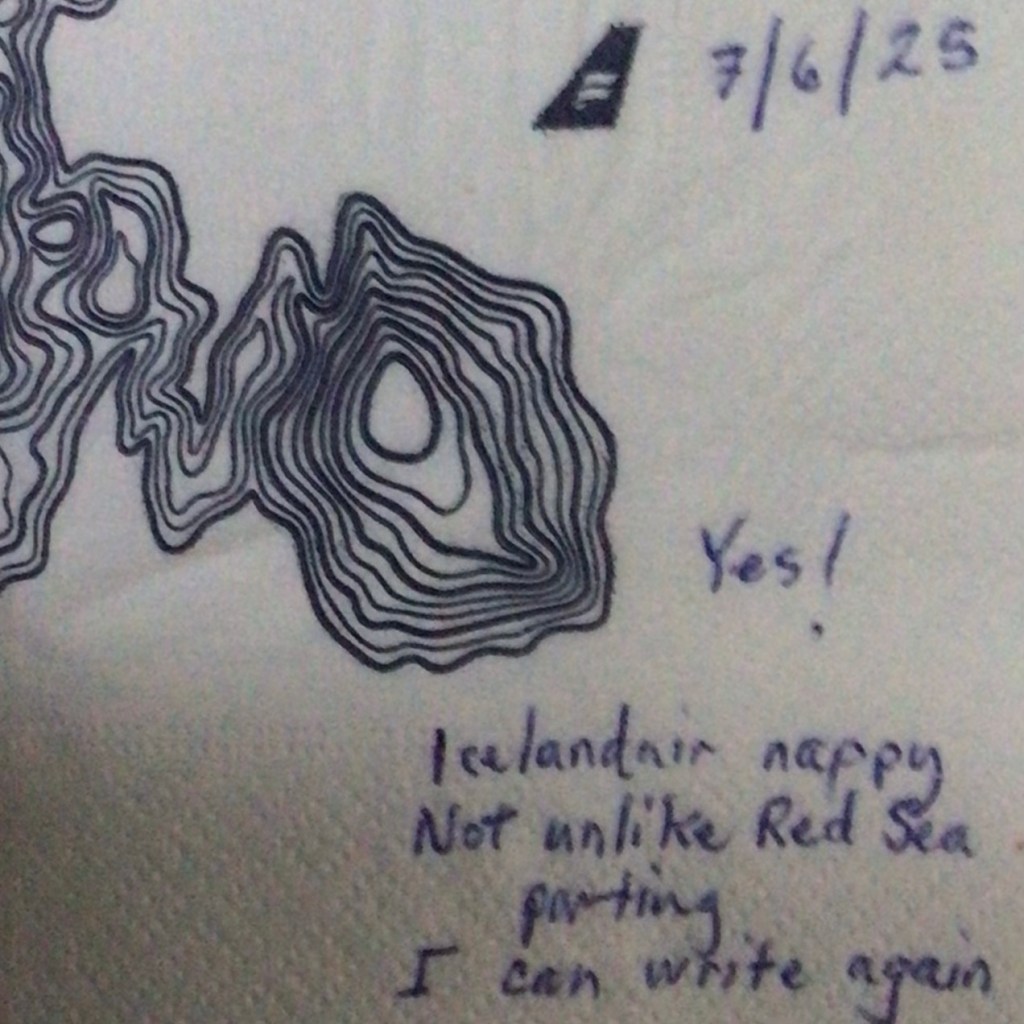 7/6/25
Yes!
Icelandair nappy
Not unlike Red Sea
parting
I can write again